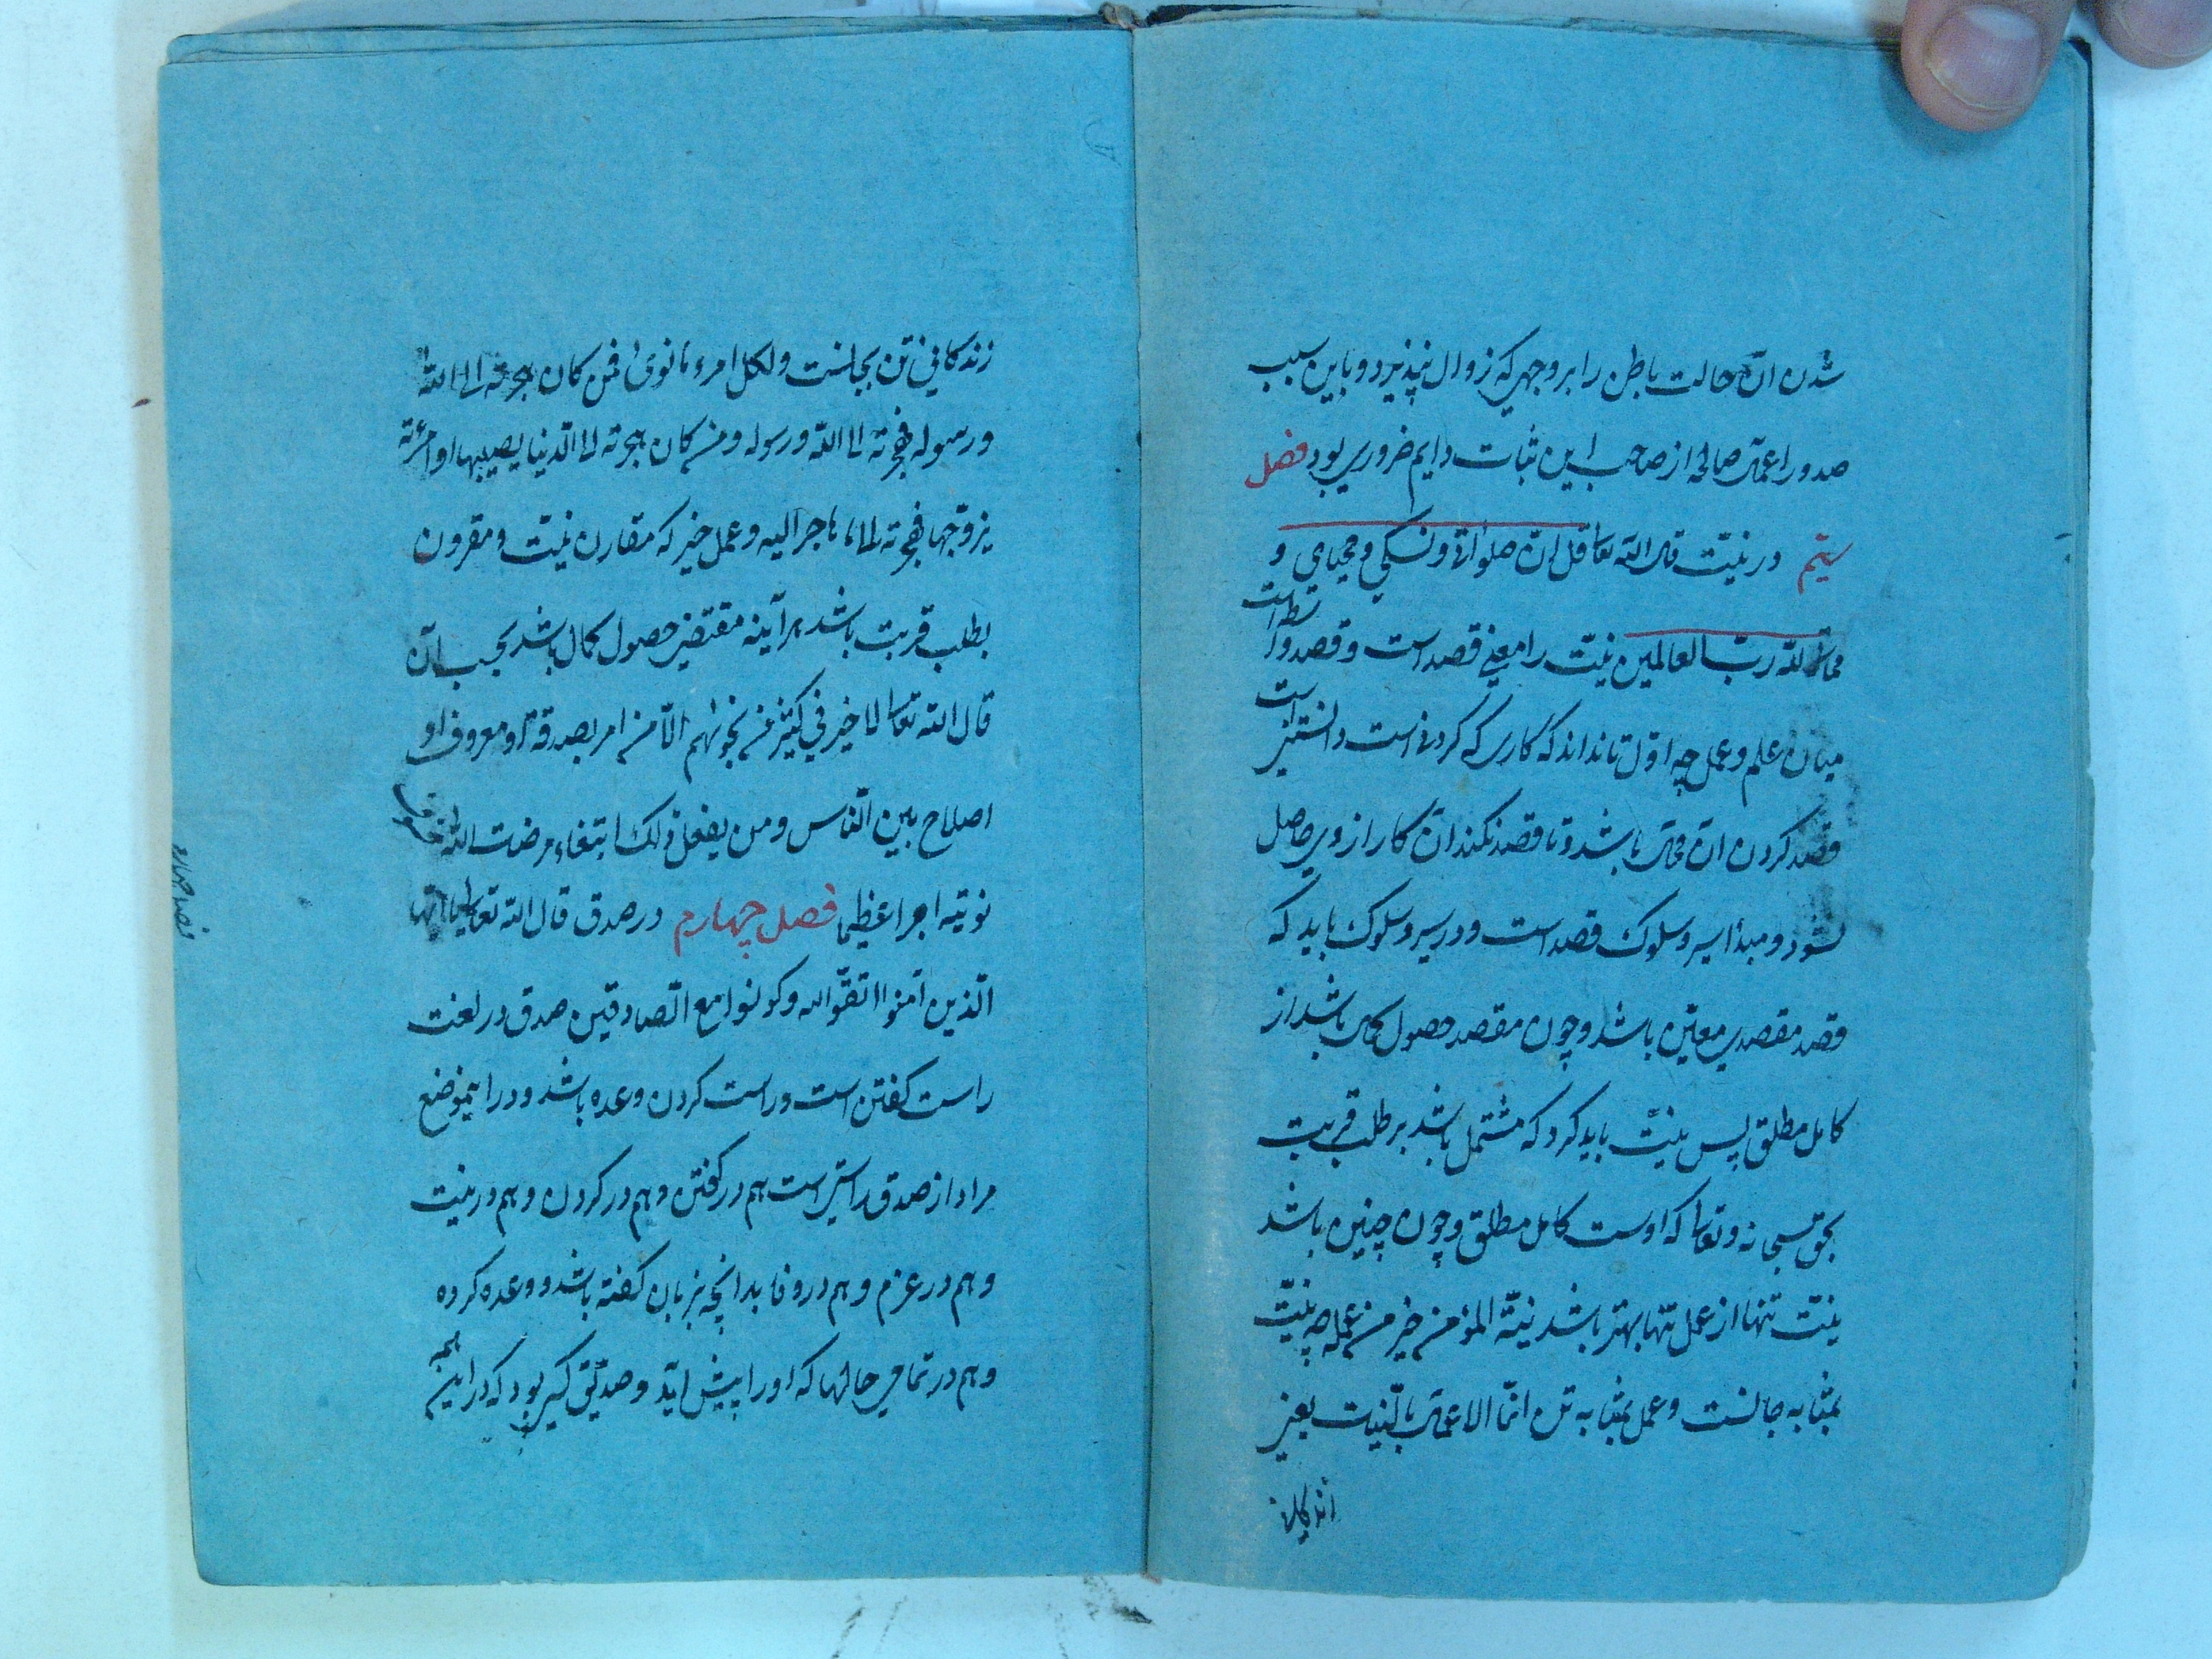 شدن ان حالت باطن را بر وجهی که زوال نپذیرد و باین سبب
صدور اعمال صالحه از صاحب این ثبات دایم ضروری بود فصل
سیّم در نیّت قال الله تعا قل انّ صلواتی و نسکی و محیای و
مماتی لله ربّ العالمین نیّت را معنی قصد است و قصد واسطه است
میان علم و عمل چه اوّل تا نداند که کاری که کردنی است دانستنی است
قصد کردن ان محال باشد و تا قصد نکند ان کار از وی حاصل
نشود و مبدأ سیر و سلوک قصد است و در سیر و سلوک باید که
قصد مقصدی معیّن باشد و چون مقصد حصول کمال باشد از
کامل مطلق پس نیّت باید کرد که مشتمل باشد بر طلب قربت
بحق سبحانه و تعا که اوست کامل مطلق و چون چنین باشد
نیّت تنها از عمل تنها بهتر باشد نیّة المؤمن خیر من عمله چه نیّت
بمثابه جانست و عمل بمثابه تن انّما الاعمال بالنّیات یعنی
زندکانی تن بجانست و لکل امرء ما نوی فمن کان هجرته الی الله
و رسوله فهجرته الی الله و رسوله و من کان هجرته الی الدّنیا یصیبها او امرأة
یزوّجها فهجرته الی ما هاجر الیه و عمل خیر که مقارن نیّت و مقرون
بطلب قربت باشد هر آینه مقتضی حصول کمال باشد بحسب آن
قال الله تعا لا خیر فی کثیر من نجوٰیهم الّا من امر بصدقة او معروف او
اصلاح بین النّاس و من یفعل ذلک ابتغاء مرضت الله فسوف
نوتیه اجرا عظیما فصل چهارم در صدق قال الله تعا یا ایها
الّذین آمنوا اتقوا الله و کونوا مع الصّادقین صدق در لغت
راست کفتن است و راست کردن وعده باشد و در اینموضع
مراد از صدق راستی است هم در کفتن و هم در کردن و هم در نیّت
و هم در عزم و هم در وفا بدانچه بزبان کفته باشد و وعده کرده
و هم در تمامی حالها که او را پیش اید و صدّیق کسی بود که در این همه
فصل چهارم